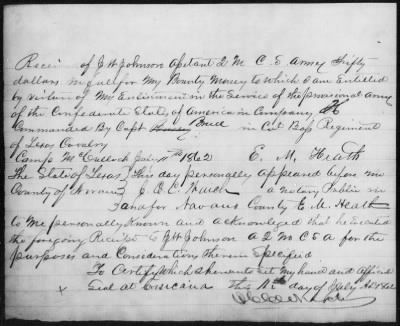 Recei of J H Johnson A 2 M C S Army Fifty
dollars in full for My Bounty Money to which I am Entitled
by virtue of My Enlistment in the Service of the provisional army
of the Confederate States of America in Company
Commanded By Capt in Col Bass Regiment
of Texas Cavalry
Camp McCulloch July 11th 1862 E. M. Heath
The State of Texas This day personally appeared before me
County of Navarro a notary Public in
and for Navarro County E. M. Heath
to Me personally Known and acknowledged that he executed
the foregoing Receipt to J H Johnson A 2 M C S A for the
purposes and Consideration therein Specified
To Certify which I hereunto set My hand and official
Seal at Corsicana this day of July